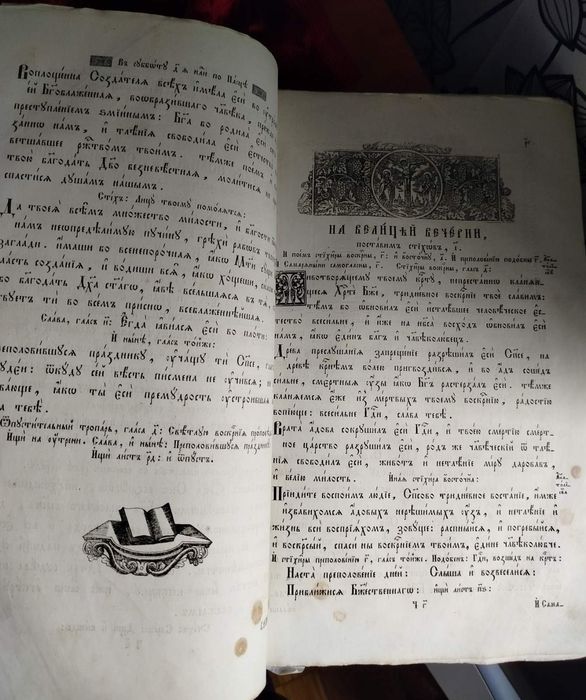 Въ сꙋббѡтꙋ д҃ѧ нли по Па́сцѣ
Воплощшна Создателѧ всѣхъ имѣла є҆сѝ во ᲂу҆тро
бѣ Бг҃облаженна, воѡбразившаго чл҃вѣка, преж
преступленїемъ ѕмїинымъ: Бг҃а бо родила є҆сѝ
намъ, и҆ тлѣнїѧ свободила є҆сѝ є҆стество
ѡ҆бетшавшее рж҃твомъ твоимъ. тѣмже
твою̀ благодать Дв҃о безневѣстная, молитисѧ
спастисѧ дꙋшамъ нашымъ.
Стіхъ: Лицꙋ твоемꙋ помолѧтсѧ:
Да твоеѧ̀ всѣмъ множество милости, и҆ благости
намъ неѡпредѣлимꙋю пꙋчинꙋ, грѣхи рабѡвъ
загладѝ. и҆маши бо всенепорочнаѧ, ꙗ҆кѡ Мт҃и
ласть созданїѧ, и҆ водиши всѧ̑, ꙗ҆коже хощеши,
бо благодать Дх҃а ст҃агѡ,
ствꙋетъ ти̑ во всемъ приснѡ, всеблаженнѣйшаѧ.
Слава, гласъ и҃: Є҆гда̀ ꙗ҆висѧ є҆сѝ во плоти:
И҆ нынѣ, гласъ тойже:
преполовившꙋсѧ праздникꙋ, ᲂу҆чащꙋ тѝ Сп҃се,
і҆ꙋдеи: ѿкꙋдꙋ сей вѣсть писмена не ᲂу҆чивсѧ;
вающе, ꙗ҆кѡ ты̀ є҆сѝ премꙋдрость ᲂу҆строившаѧ
тебѣ̀.
Ѿпꙋстительный тропарь, гласъ г҃: Свѣтлꙋю воскр҃нїѧ проповѣдь
Ищи на ᲂу҆трени. Слава, и҆ нынѣ: Преполовившꙋсѧ праздникꙋ
Ищи листъ рд҃: и҆ ѿпꙋстъ.
НА ВЕЛИЦѢЙ ВЕЧЕРНИ,
поставимъ стїхѡвъ, і҃.
И҆ поемъ стїхиры воскр҃ны, г҃: и҆ восточнꙋ, а҃. И҆ преполовенїѧ подобны г҃.
Самарѧныни самогласны, г҃. Стїхиры воскр҃ны, гласъ д҃:
Животворѧщемꙋ твоемꙋ крⷭ҇тꙋ, непрестаннѡ кланѧю
щесѧ Хрⷭ҇тѐ Бж҃е, тридневное воскр҃нїе твоѐ славимъ:
тѣмъ бо ѡ҆бновилъ є҆сѝ и҆стлѣвшее человѣческое є҆
стество̀ всесильне, и҆ и҆же на нб҃са̀ восходъ ѡ҆бновилъ є҆сѝ
намъ, ꙗ҆кѡ є҆динъ бл҃гъ и҆ чл҃вѣколюбецъ.
Древа преслꙋшанїѧ запрещенїе разрѣшилъ є҆сѝ Сп҃се, на
древѣ крⷭ҇тнѣмъ волею пригвоздивсѧ, и҆ во а҆дъ сошедъ
сильне, смертныѧ ᲂу҆зы ꙗ҆кѡ Бг҃ъ растерзалъ є҆сѝ. тѣмже
кланѧемсѧ є҆же и҆з̾ мертвыхъ твоемꙋ воскр҃нїю, радостїю
вопїюще: всесильне Гдⷭ҇и, слава тебѣ̀.
Врата̀ а҆дова сокрꙋшилъ є҆сѝ Гдⷭ҇и, и҆ твоею̀ смертїю смерт
ное царство разрꙋшилъ є҆сѝ, родъ же чл҃вѣческїй ѿ тлѣ
нїѧ свободилъ є҆сѝ, животъ и҆ нетлѣнїе мїрꙋ даровавъ,
и҆ велїю милость. Ины стїхиры восточны.
Прїидите воспоимъ людїе, Сп҃сово тридневное востанїе, и҆мже
и҆збавихомсѧ а҆довыхъ нерѣшимыхъ ᲂу҆зъ, и҆ нетлѣнїе и҆
жизнь всѝ воспрїѧхомъ, зовꙋще: распныйсѧ, и҆ погребыйсѧ,
и҆ воскр҃сый, спаси ны̀ воскр҃нїемъ твоимъ, є҆дине чл҃вѣколюбче.
И҆ стїхиры преполовенїѧ г҃, гласъ тойже. Подобенъ: Гдⷭ҇и, возшедъ на крⷭ҇тъ:
Наста̀ преполовенїе днѐй: Слыша и҆ возвеселисѧ:
Приближисѧ Бж҃ественнагѡ: и҆щи листъ п҃ѕ:
Ч г҃ И҆ Сама-